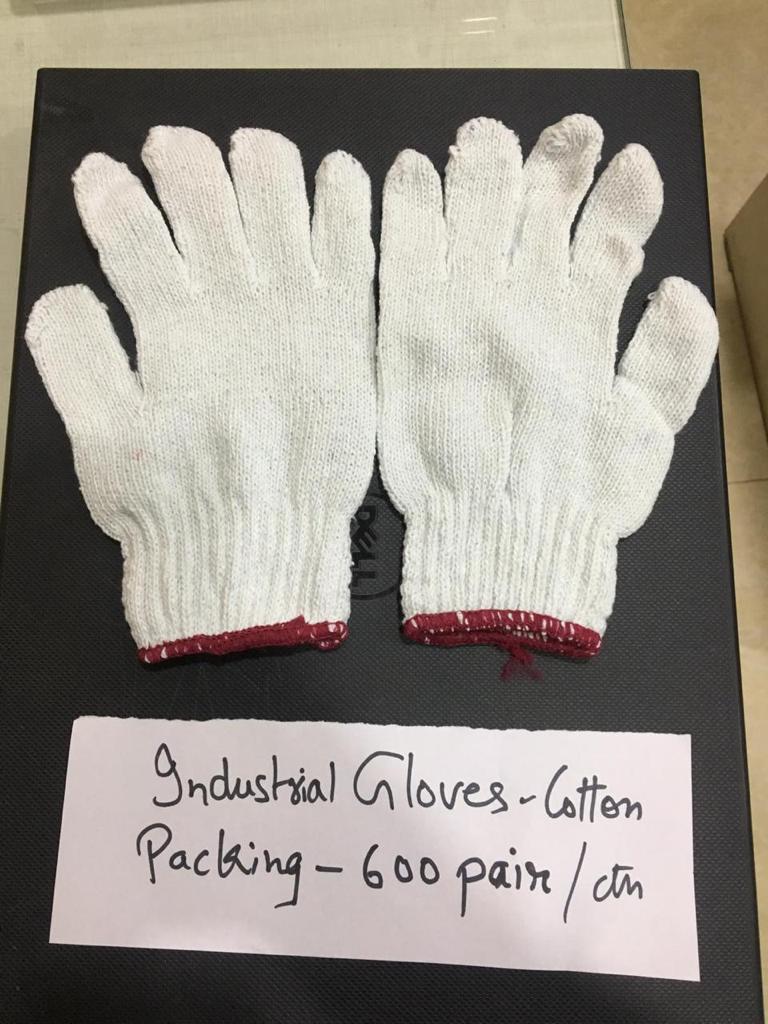 DELL
Industrial Gloves - Cotton
Packing - 600 pair / ctn